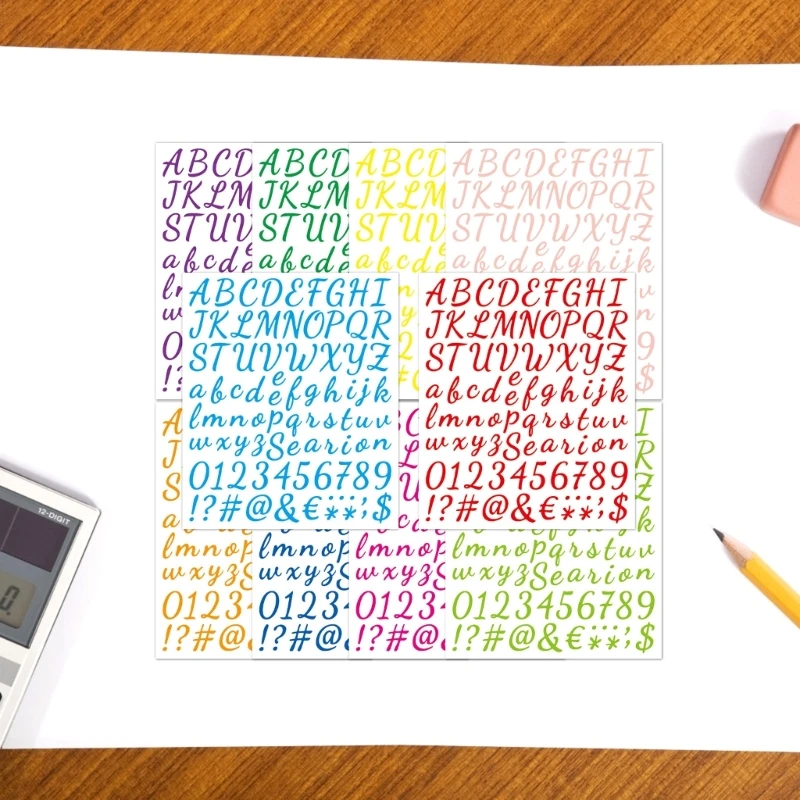 ABCD
JKLM
STUV
abcde
ABCD
JKLM
STUV
abcde
ABCD
JKLM
STUV
abcde
ABCDEFGHI
JKLMNOPQR
STUVWXYZ
abcdefghijk
ABCDEFGHI
JKLMNOPQR
STUVWXYZ
abcdefghijk
lmnopqrstuv
wxyzSearion
0123456789
!?#@&€**;$
ABCDEFGHI
JKLMNOPQR
STUVWXYZ
abcdefghijk
lmnopqrstuv
wxyzSearion
0123456789
!?#@&€**;$
12-DIGIT
0.
lmnop
wxyzS
01234
!?#@&
lmnop
wxyzS
01234
!?#@&
lmnop
wxyzS
01234
!?#@&
lmnopqrstuv
wxyzSearion
0123456789
!?#@&€**;$